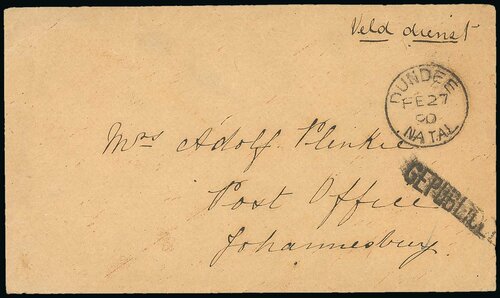 Veld dienst
DUNDEE
FE 27
00
NATAL
Mrs Adolf Plenkie
Post Office
Johannesburg
GEPUBLIC